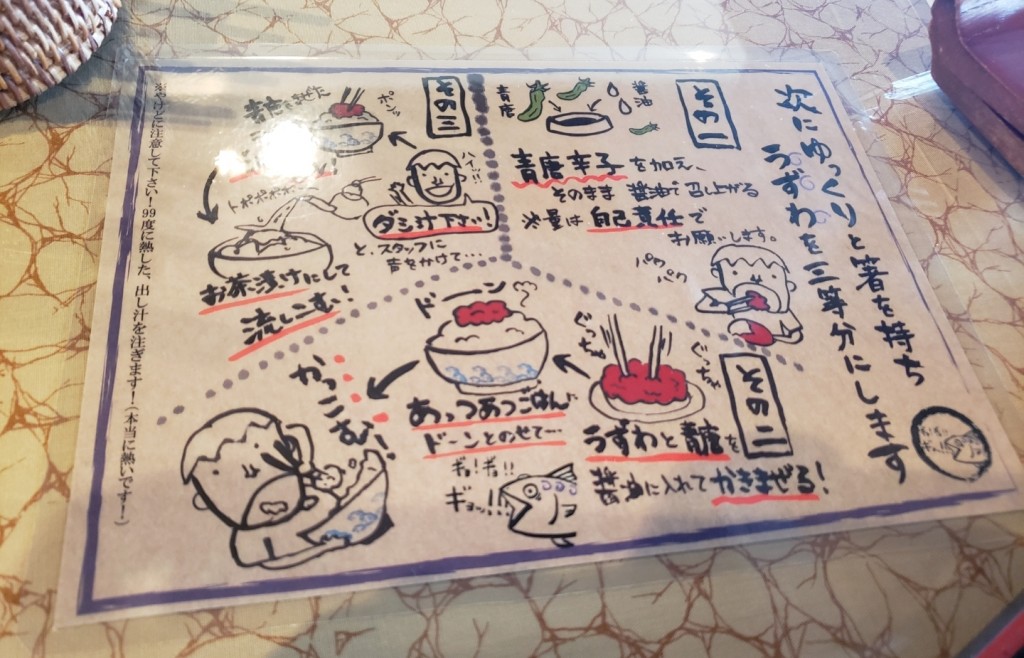 次にゆっくりと箸を持ち
うずわを三等分にします
その一
醤油
青唐
青唐辛子を加え、
そのまま醤油で召し上がる
※量は自己責任で
お願いします。
パク
パク
その二
ぐっちゃ
ぐっちゃ
うずわと青唐を
醤油に入れてかきまぜる!
ドーン
あっつあつごはんに
ドーンとのせて…
ギョ!ギョ!!
ギョッ!!
かっこむ!
その三
ポンッ
ハイッ!!
ダシ汁下さい!
と、スタッフに
声をかけて…
トポポポポ
お茶漬けにして
流しこむ!
※やけどに注意して下さい!99度に熱した、出し汁を注ぎます!(本当に熱いです!)